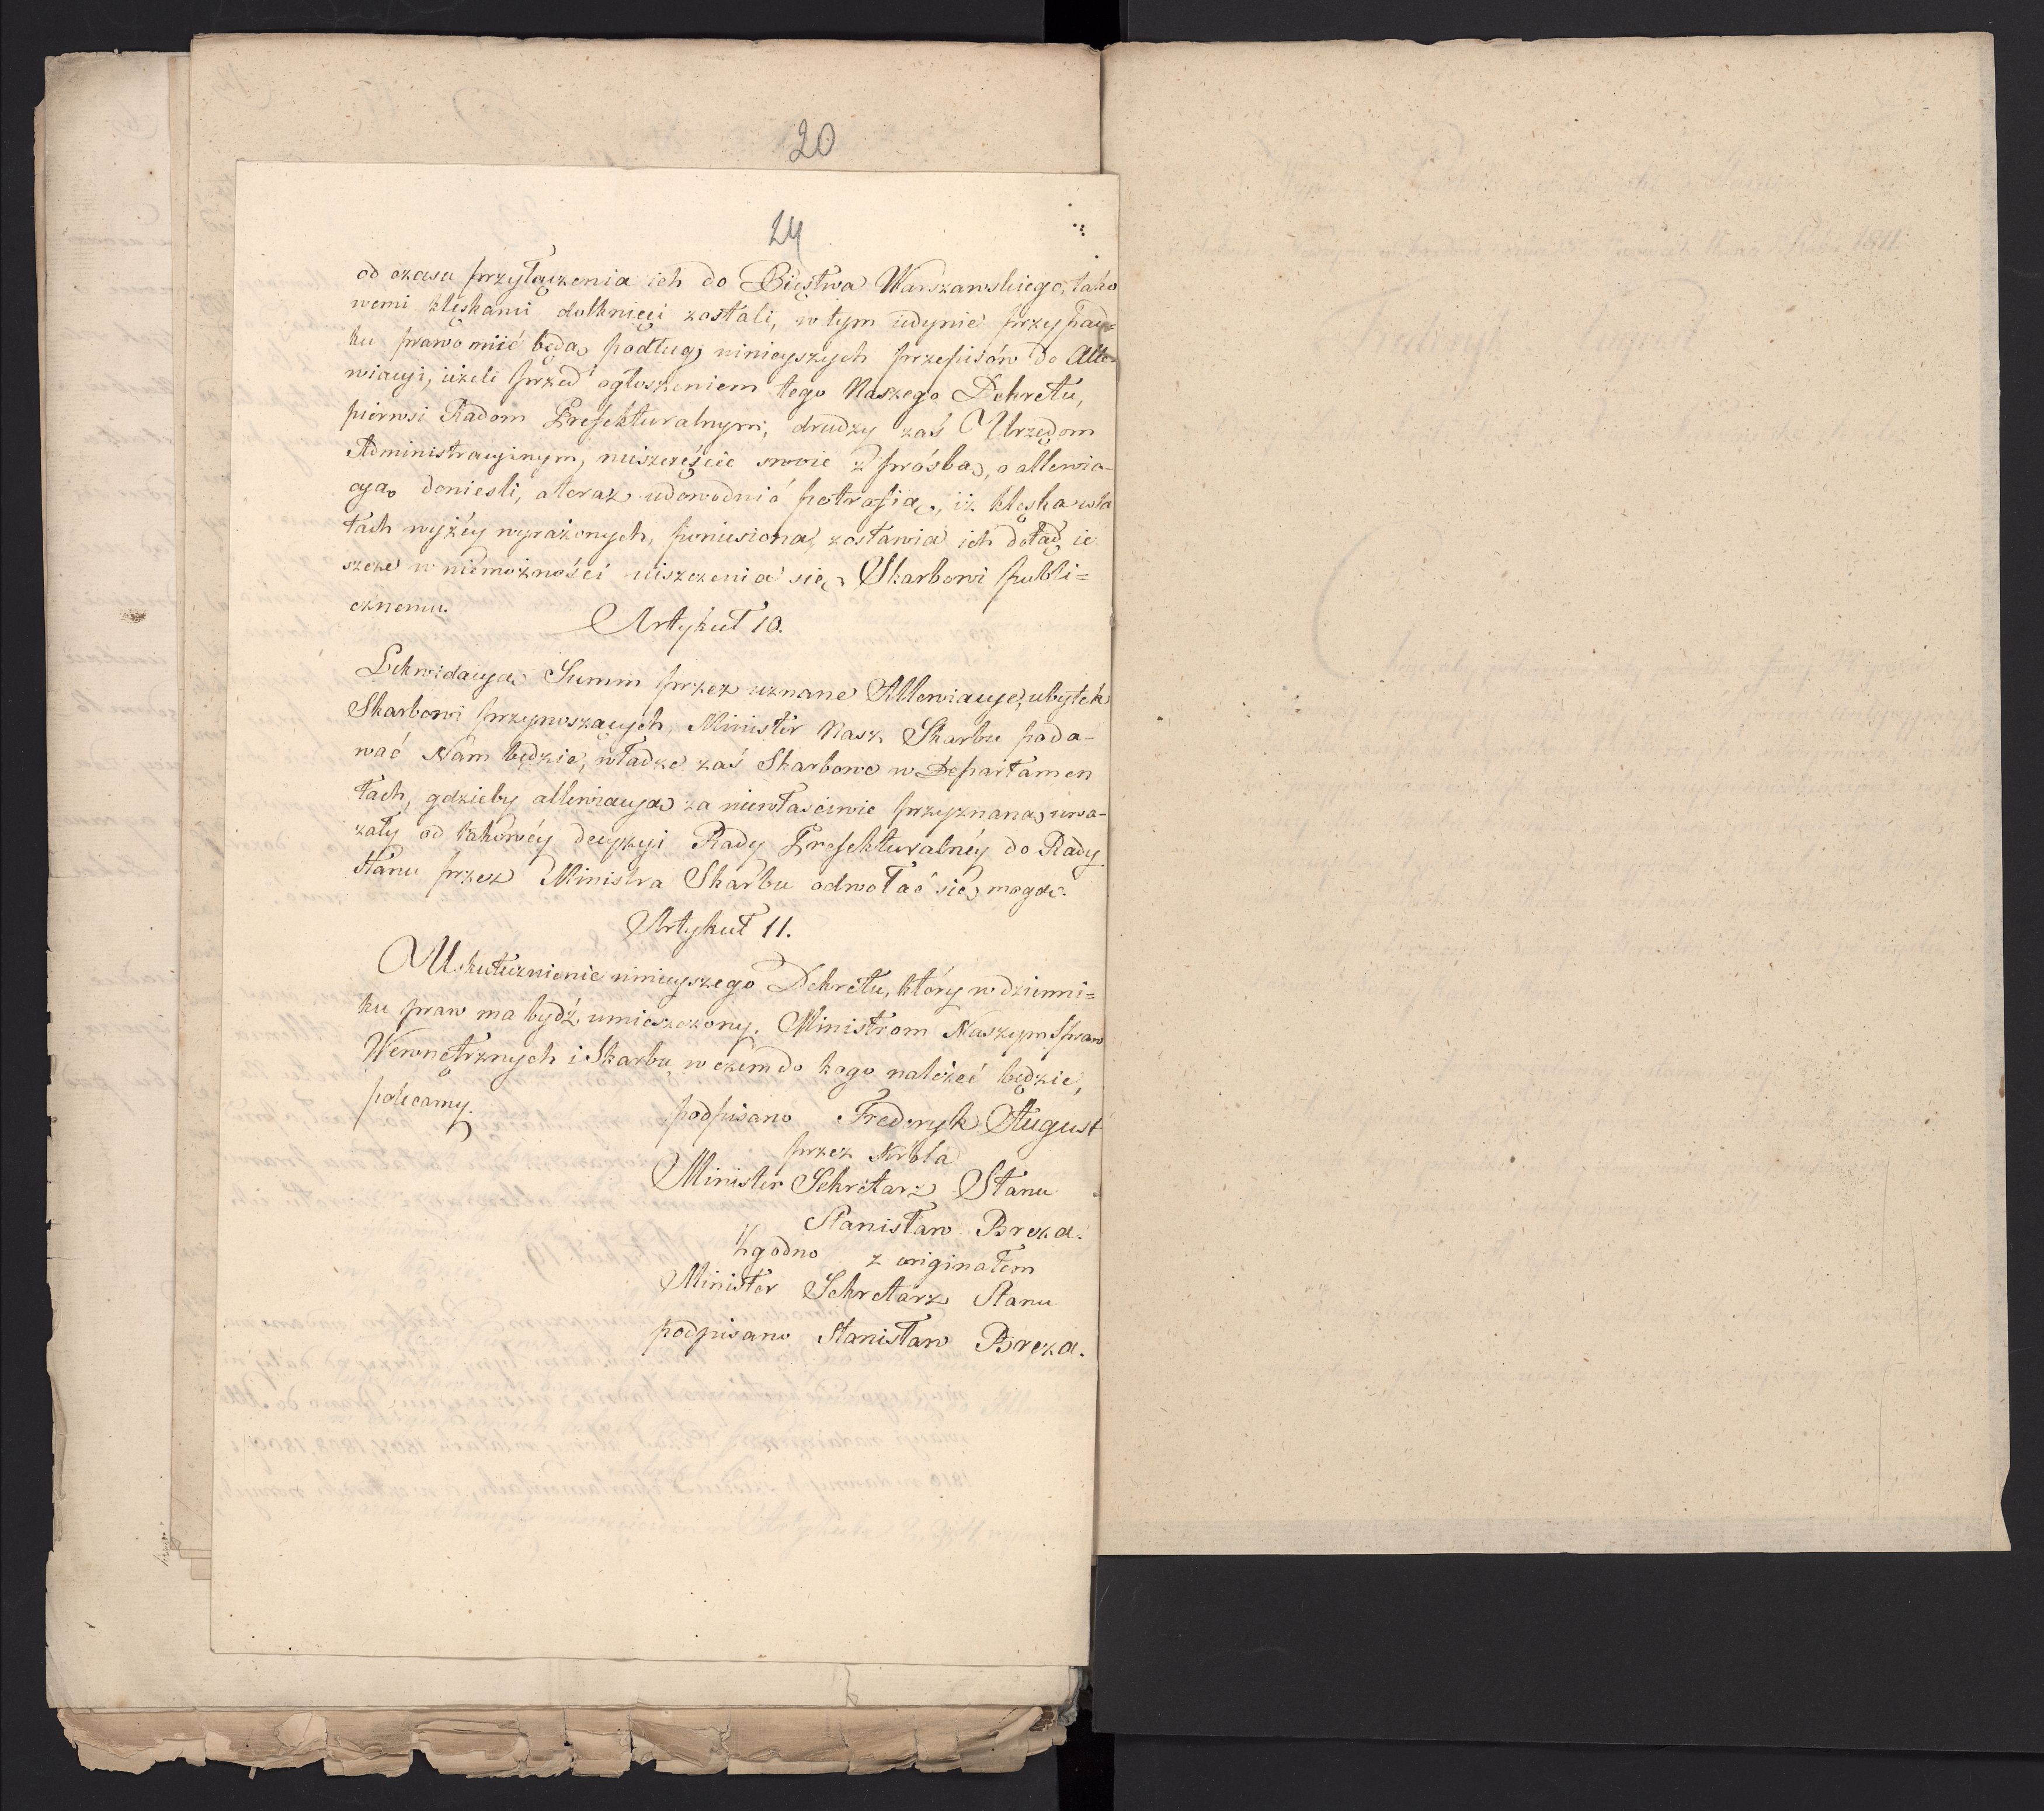 20
24
od czasu przyłączenia ich do Xięstwa Warszawskiego, tako
wemi klęskami dotknięci zostali, w tym iedynie przypad=
ku prawo mieć będą, podług ninieyszych przepisów do Alle=
wiacyi, ieżeli przed ogłoszeniem tego Naszego Dekretu,
pierwsi Radom Prefekturalnym, drudzy zaś Urzędom
Administracyinym, nieszczęście swoie z prośbą, o allewia-
cyą donieśli, a teraz udowodnić potrafią, iż klęska w la
tach wyżéy wyrażonych, poniesiona, zostawia ich dotąd ie
szcze w niemożności uiszczenia się Skarbowi publi=
cznemu.
Artykuł 10.
Likwidacyą Summ przez uznane Allewiacye, ubytek
Skarbowi przynoszących, Minister Nasz Skarbu poda-
wać Nam będzie, władze zaś Skarbowe w Departamen
tach, gdzieby allewiacyą za niewłaściwie przyznaną uwa-
żały od takowéy decyzyi Rady Prefekturalnéy do Rady
Stanu przez Ministra Skarbu odwołać się mogą.
Artykuł 11.
Uskutecznienie ninieyszego Dekretu, który w dzienni=
ku praw ma bydź umieszczony, Ministrom Naszym Spraw
Wewnętrznych i Skarbu w czém do kogo należeć będzie,
polecamy.
podpisano Fryderyk August
przez Króla
Minister Sekretarz Stanu
Stanisław Breza.
Zgodno z originałem
Minister Sekretarz Stanu
podpisano Stanisław Breza.